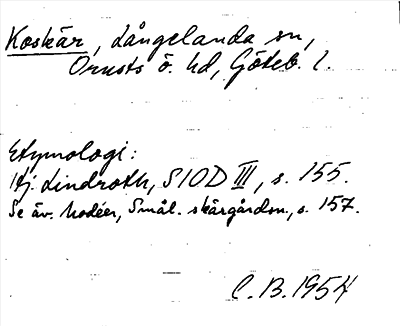 Koskär, Långelanda sn,
Orusts ö. hd, Göteb. l.
Etymologi:
Hj. Lindroth, SIOD III, s. 155.
Se äv. Modéer, Smål. skärgårdsn, s. 157.
C.B. 1954